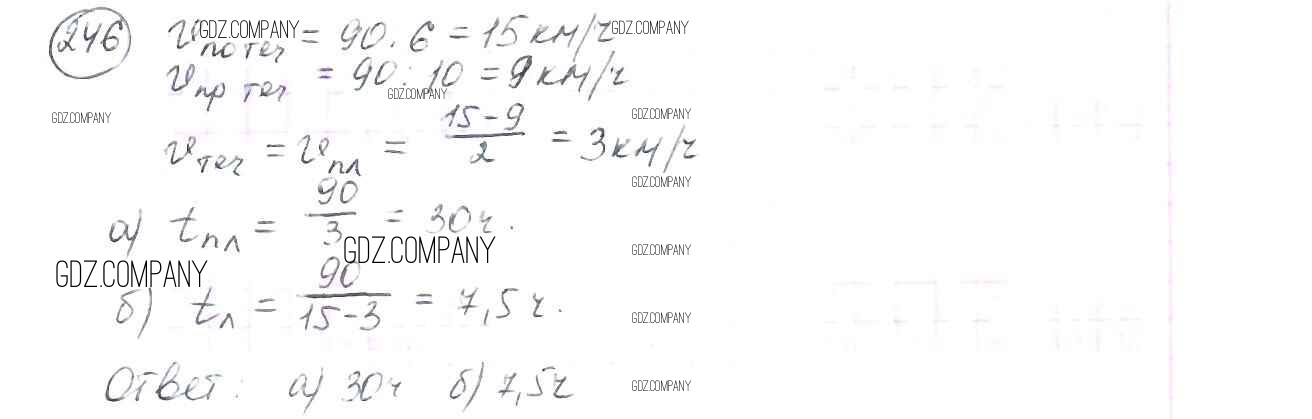 246 v по теч = 90 : 6 = 15 км/ч
GDZ.COMPANY GDZ.COMPANY
v пр теч = 90 : 10 = 9 км/ч
GDZ.COMPANY
GDZ.COMPANY GDZ.COMPANY
v теч = v пл = (15 - 9)/2 = 3 км/ч
GDZ.COMPANY
а) t пл = 90/3 = 30 ч.
GDZ.COMPANY GDZ.COMPANY
GDZ.COMPANY
б) t л = 90/(15-3) = 7,5 ч.
GDZ.COMPANY
Ответ: а) 30 ч б) 7,5 ч
GDZ.COMPANY